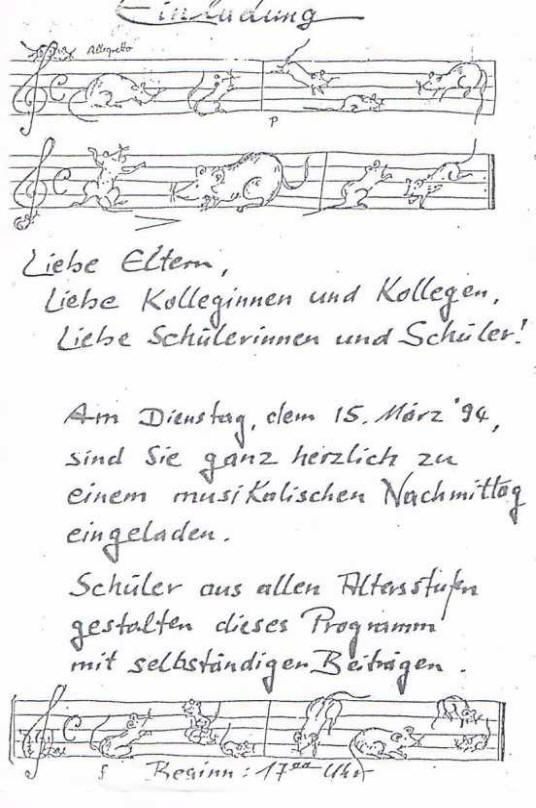 Einladung
Allegretto
p
Liebe Eltern,
Liebe Kolleginnen und Kollegen,
Liebe Schülerinnen und Schüler!
Am Dienstag, dem 15. März '94,
sind Sie ganz herzlich zu
einem musikalischen Nachmittag
eingeladen.
Schüler aus allen Altersstufen
gestalten dieses Programm
mit selbständigen Beiträgen.
f Beginn: 17⁰⁰ Uhr